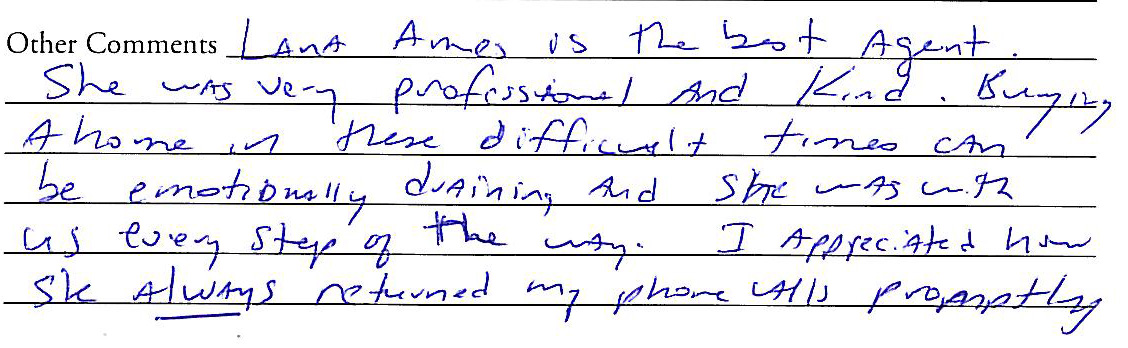 Other Comments Lana Ames is the best Agent.
She was very professional and Kind. Buying
A home in these difficult times can
be emotionally draining and she was with
us every step of the way. I appreciated how
she always returned my phone calls promptly